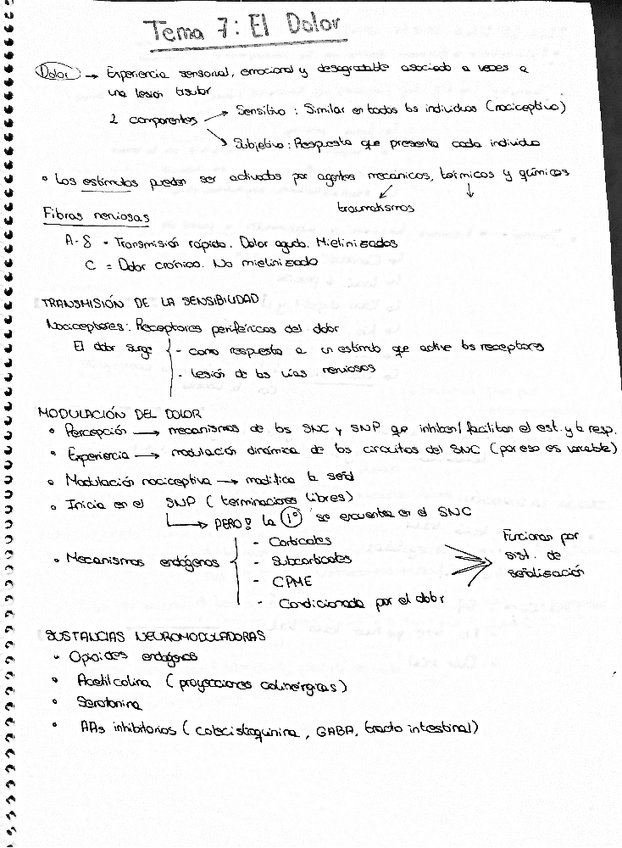 Tema 7: El Dolor
Dolor → Experiencia sensorial, emocional y desagradable asociado a veces a
una lesión tisular
2 componentes → Sensitivo: Similar en todos los individuos (nociceptivo)
→ Subjetivo: Respuesta que presenta cada individuo
• Los estímulos pueden ser activados por agentes mecánicos, térmicos y químicos
traumatismos
Fibras nerviosas
A-δ = Transmisión rápida. Dolor agudo. Mielinizadas
C = Dolor crónico. No mielinizado
TRANSMISIÓN DE LA SENSIBILIDAD:
Nociceptores: Receptores periféricos del dolor
El dolor surge - como respuesta a un estímulo que active los receptores
- lesión de las vías nerviosas
MODULACIÓN DEL DOLOR
• Percepción → mecanismos de los SNC y SNP que inhiben/facilitan el est. y la resp.
• Experiencia → modulación dinámica de los circuitos del SNC (por eso es variable)
• Modulación nociceptiva → modifica la señal
• Inicia en el SNP (terminaciones libres)
→ PERO! la 1º se encuentra en el SNC
• Mecanismos endógenos
- Corticales
- Subcorticales
- CPME
- Condicionada por el dolor
Funcionan por
sist. de
señalisación
SUSTANCIAS NEUROMODULADORAS
• Opioides endógenos
• Acetilcolina (proyecciones colinérgicas)
• Serotonina
• AAs inhibitorios (colecistoquinina, GABA, tracto intestinal)